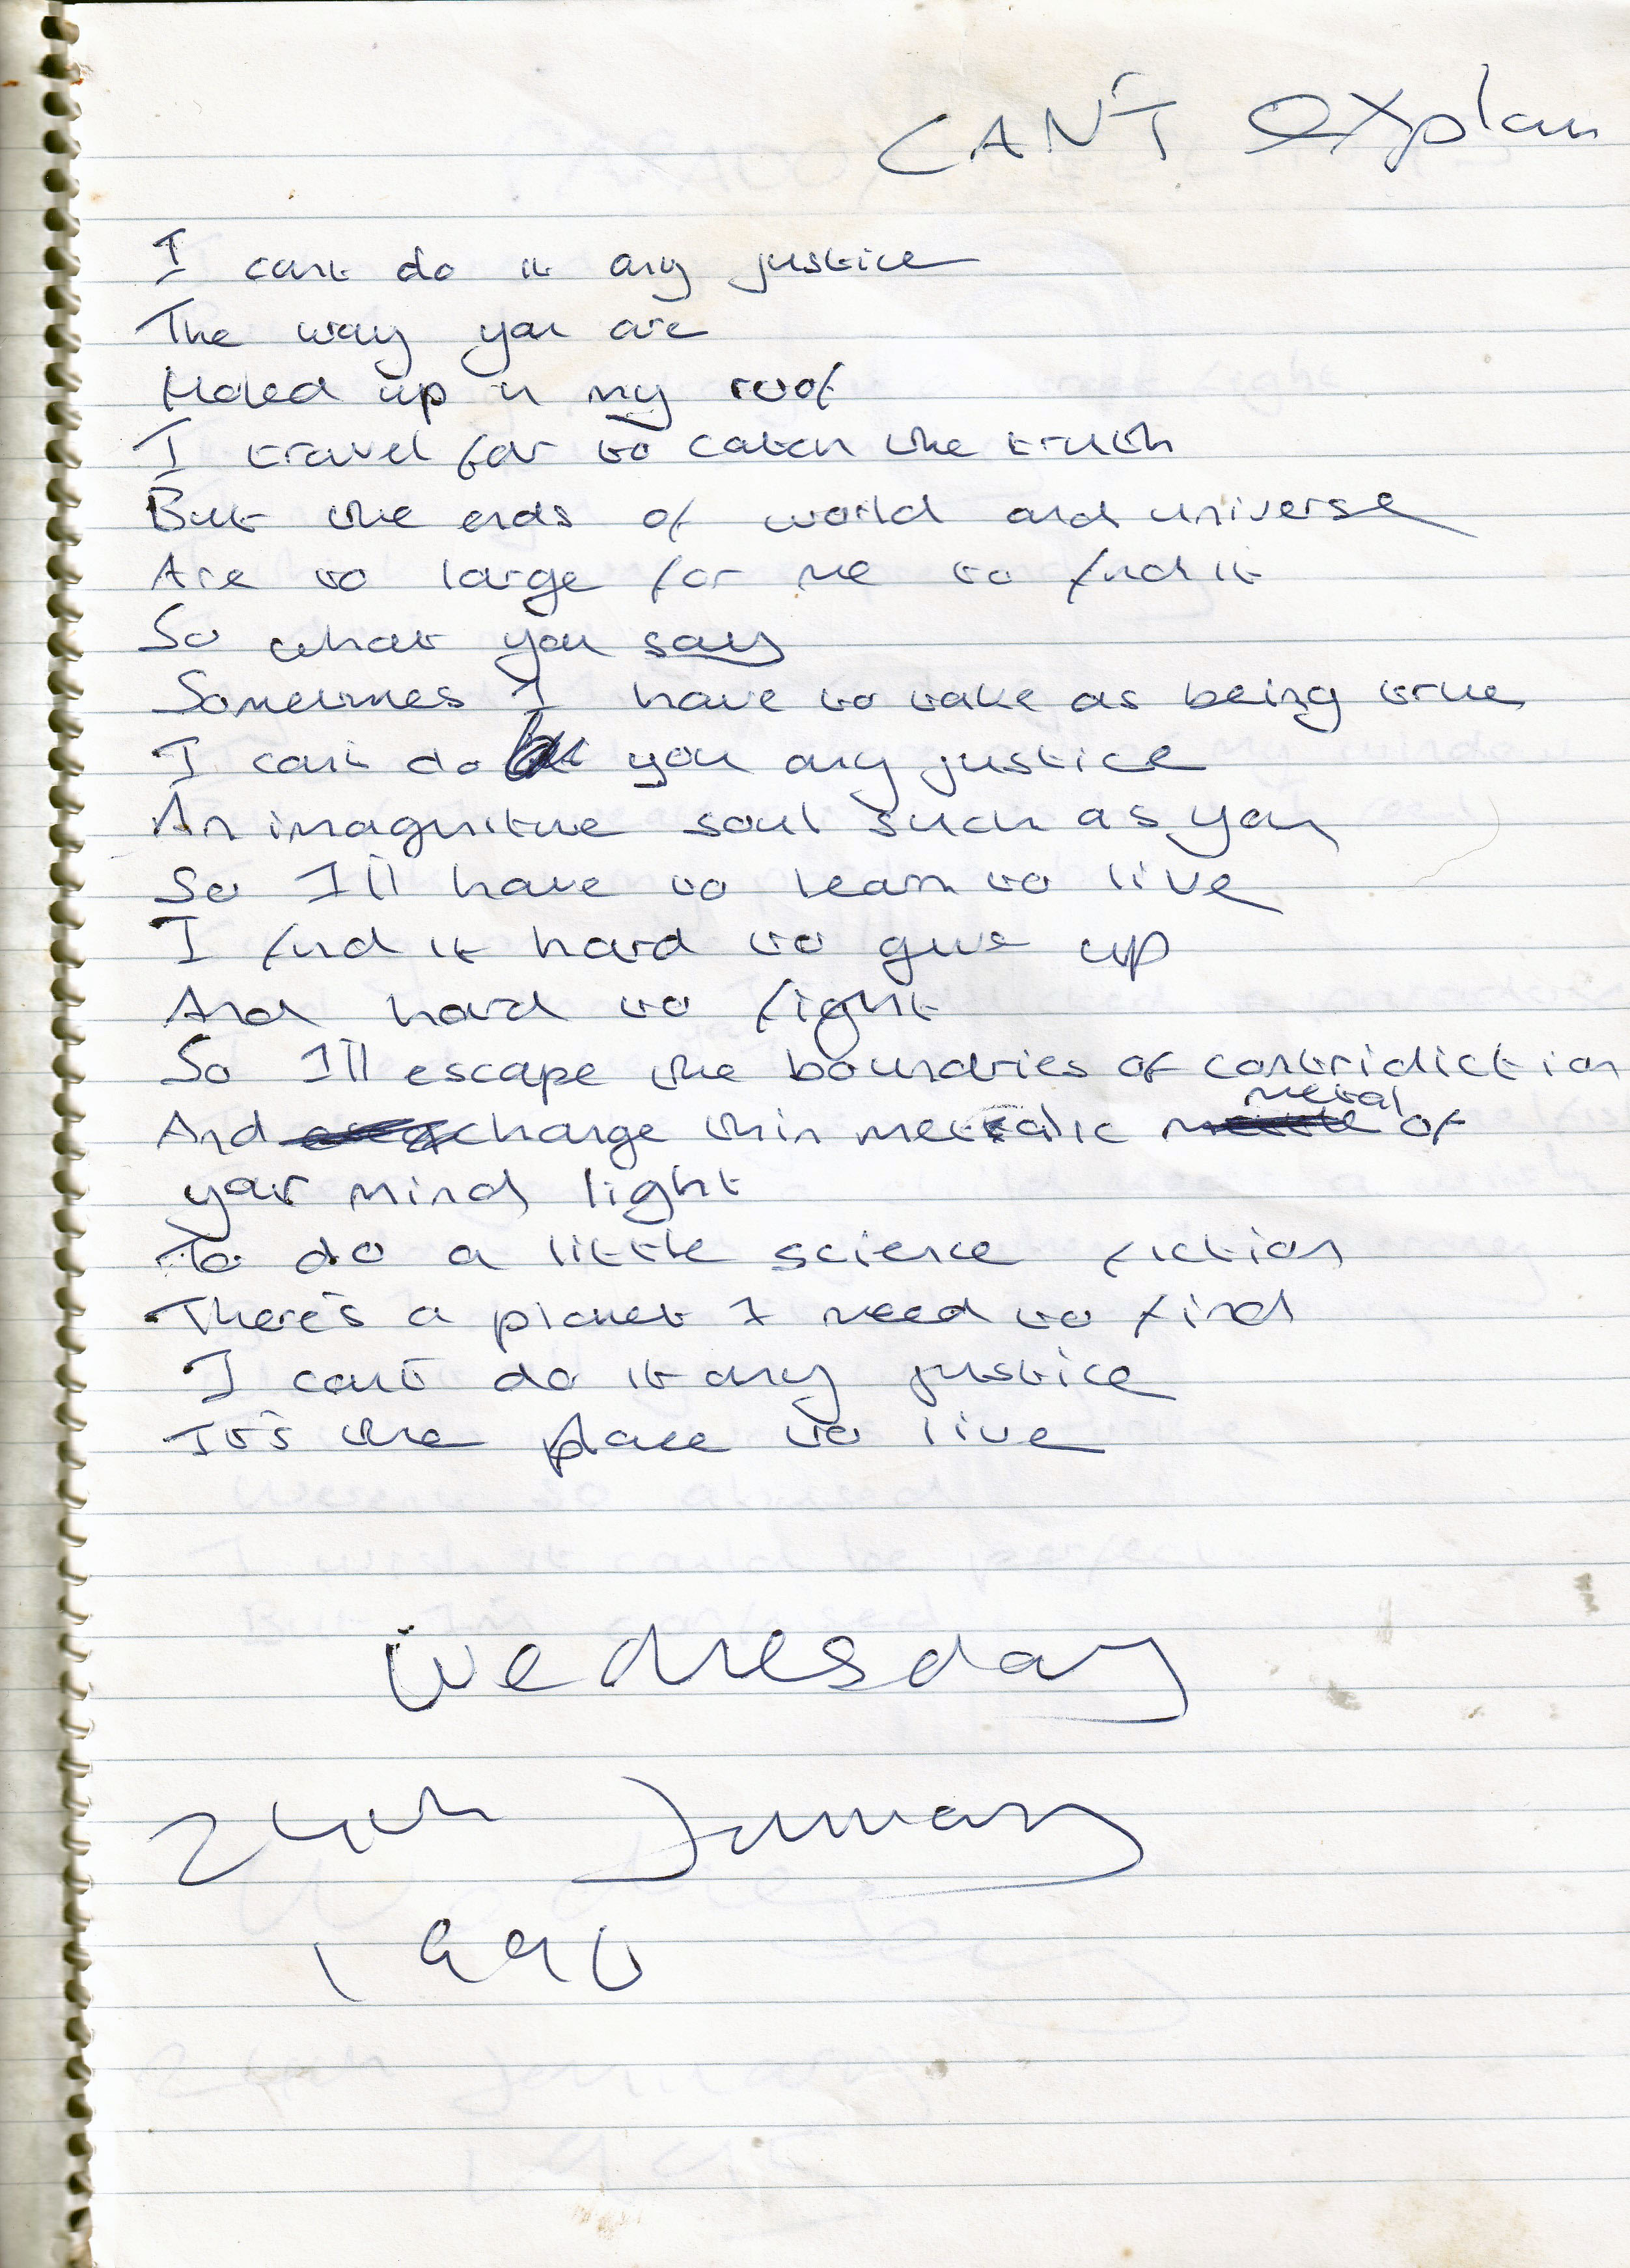 CAN'T explain
I cant do it any justice
The way you are
Holed up in my roof
I travel far to catch the truth
But the ends of world and universe
Are to large for me to find it
So what you say
Sometimes I have to take as being true
I can't do you any justice
An imaginitive soul such as you
So I'll have to learn to live
I find it hard to give up
And hard to fight
So I'll escape the boundries of contridiction
And change thin metalic metal of
your mind light
To do a little science fiction
There's a planet I need to find
I can't do it any justice
It's the place to live
Wednesday
24th January
1990